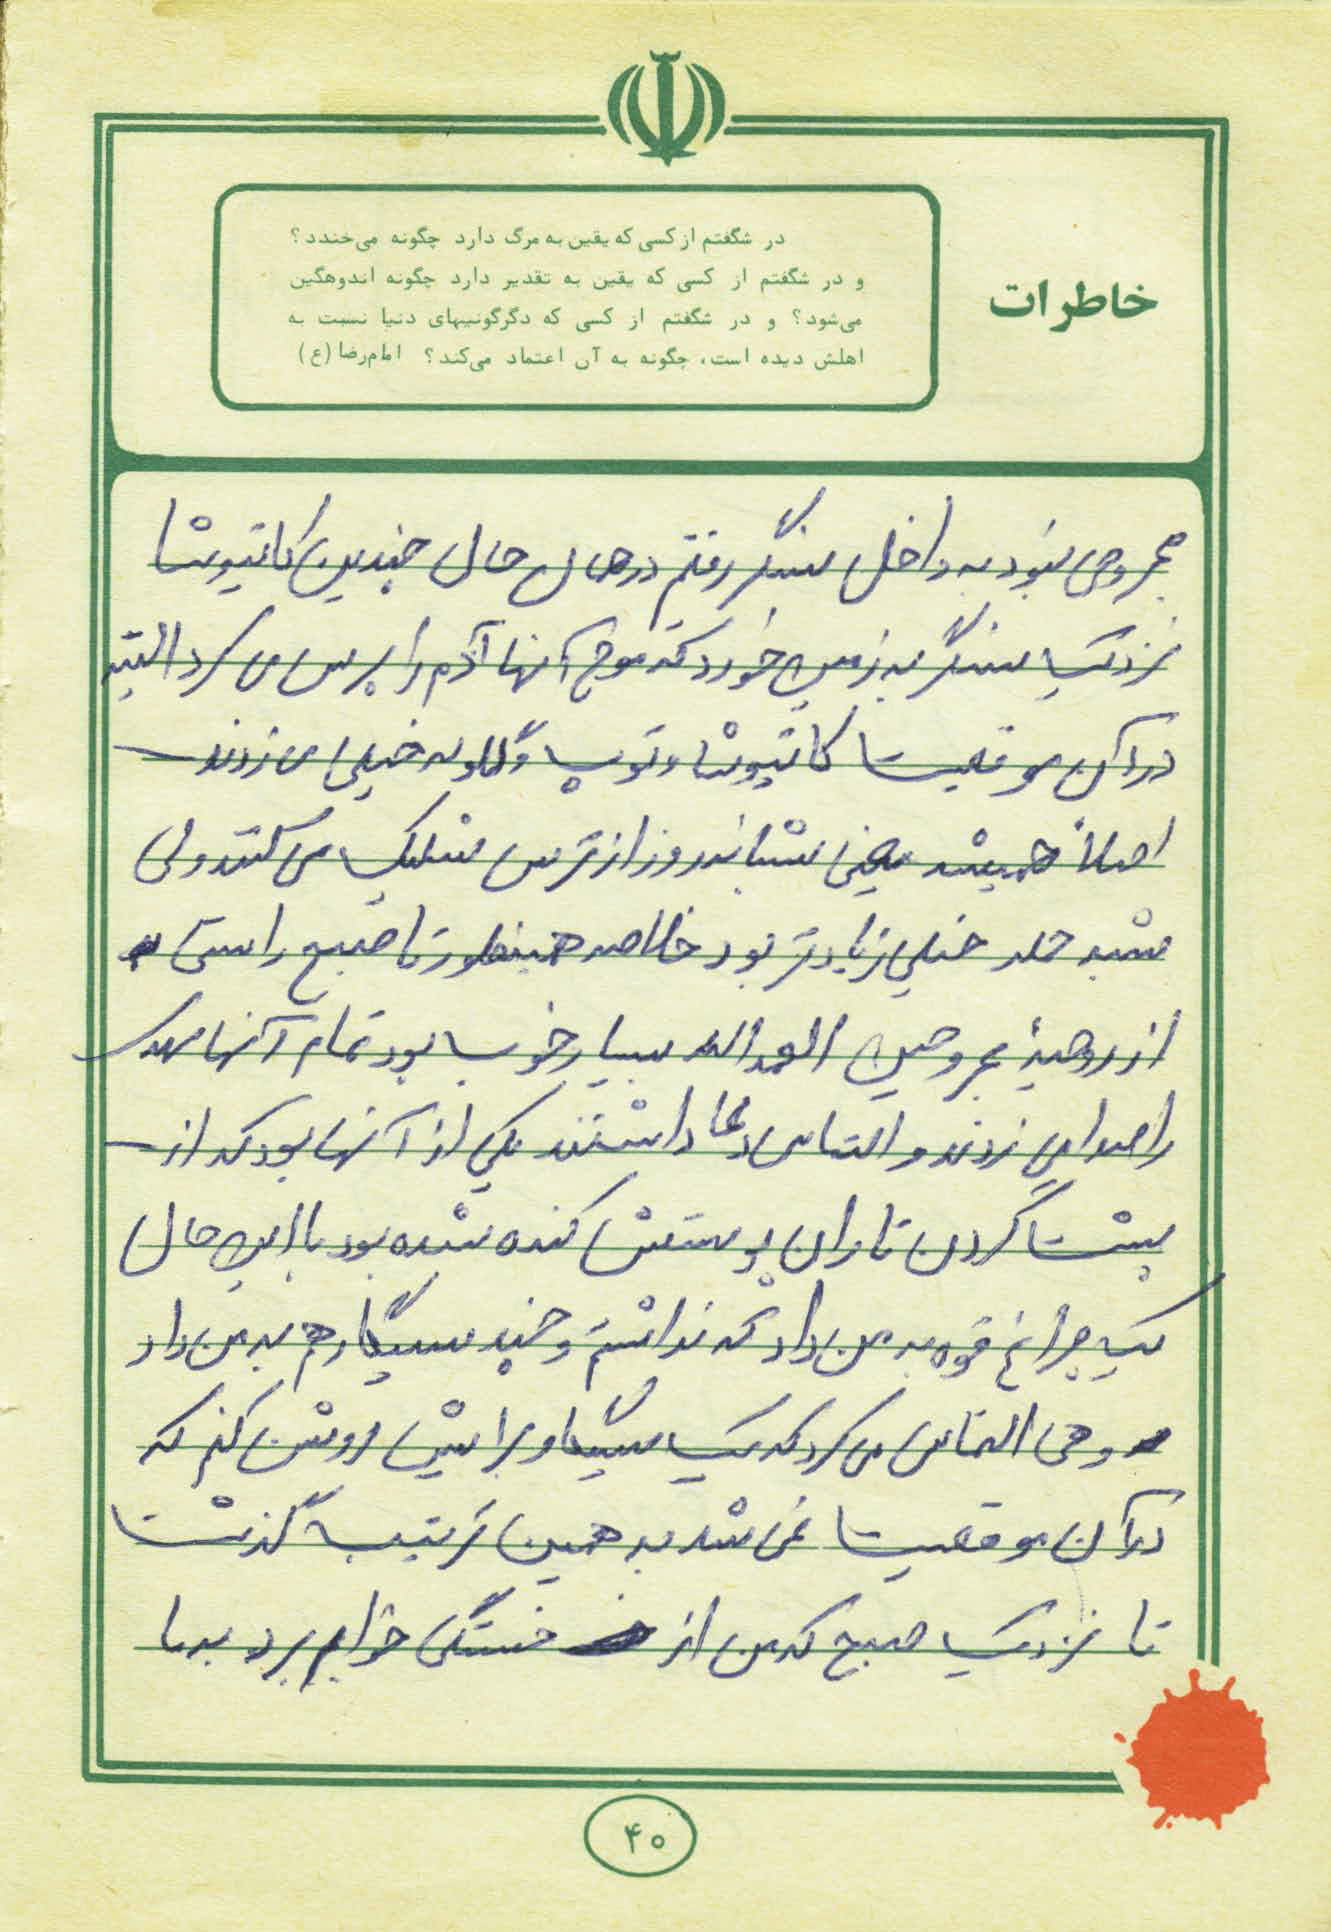 خاطرات
در شگفتم از کسی که یقین به مرگ دارد چگونه می‌خندد؟
و در شگفتم از کسی که یقین به تقدیر دارد چگونه اندوهگین
می‌شود؟ و در شگفتم از کسی که دگرگونیهای دنیا نسبت به
اهلش دیده است، چگونه به آن اعتماد می‌کند؟ امام‌رضا (ع)
مجروحی نبود به داخل سنگر رفتم در همان حال چندین کاتیوشا
نزدیک سنگر به زمین خورد که موج آنها آدم را پرس می کرد البته
در آن موقعیت کاتیوشا و توپ و گلوله خیلی می زدند
اصلاً همیشه یعنی شبانه روز از ترس شلیک می کنند ولی
شب حمله خیلی زیادتر بود خلاصه همینطور تا صبح راستی
از روحیهٔ مجروحین الحمدالله بسیار خوب بود تمام آنها مهدی
را صدا می زدند و التماس دعا داشتند یکی از آنها بود که از
پشت گردن تا ران پوستش کنده شده بود با این حال
یک چراغ قوه به من داد که نداشتم و چند سیگار هم به من داد
و هی التماس می کرد که یک سیگار برایش روشن کنم که
در آن موقعیت نمی شد به همین ترتیب گذشت
تا نزدیک صبح که من از خستگی خوابم برد بدنا
۴۰